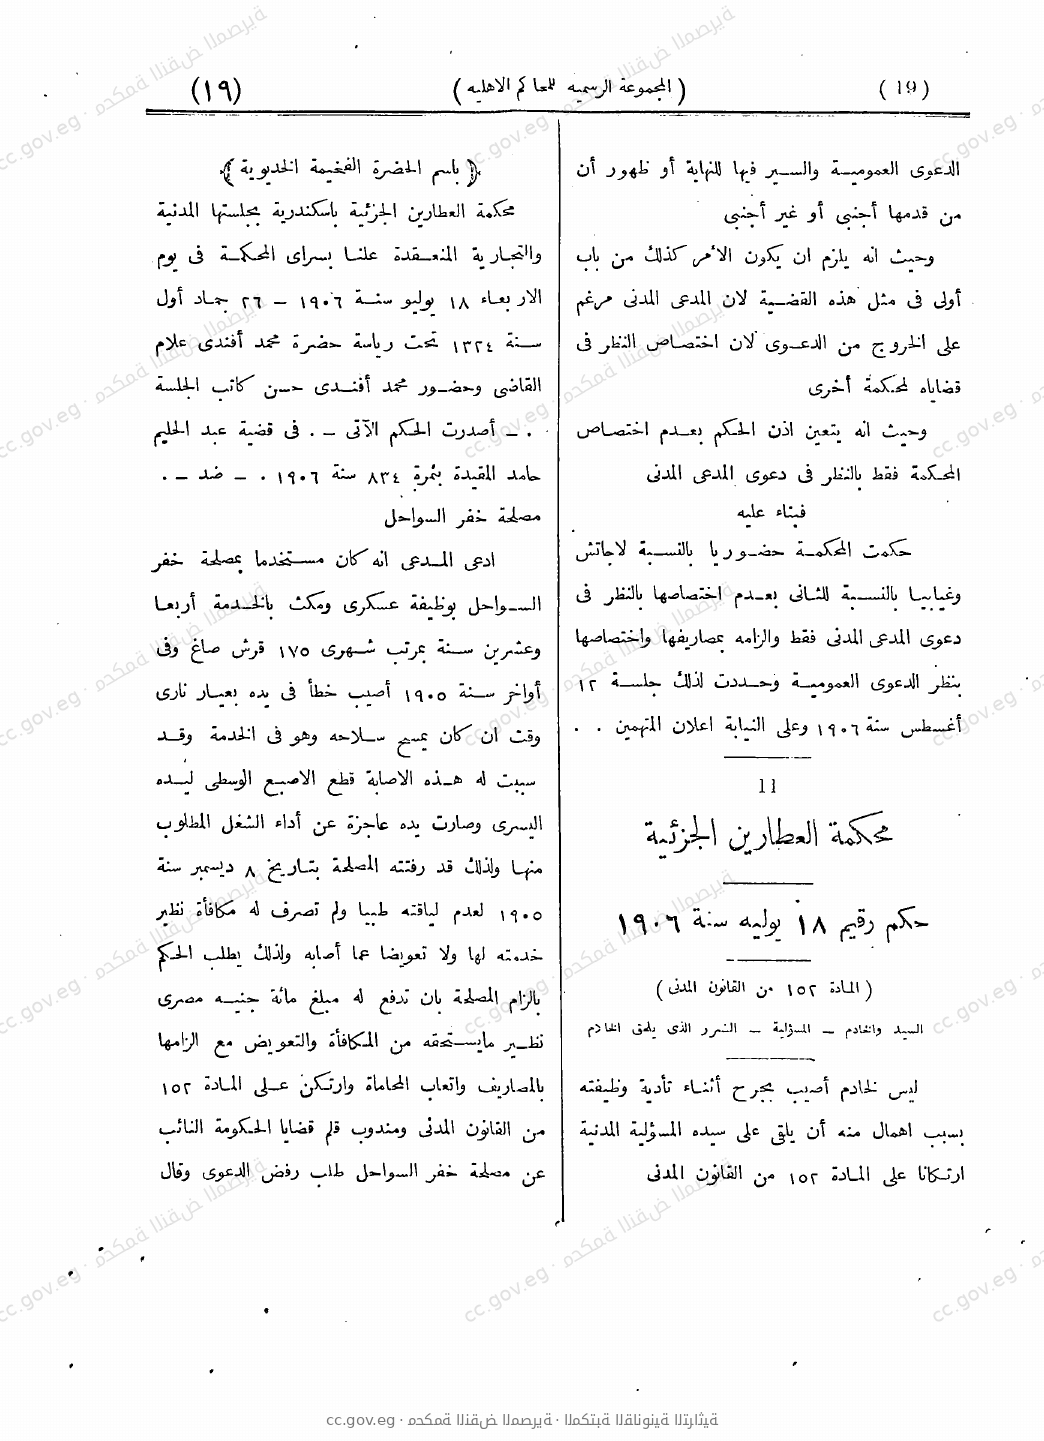 (19) (المجموعة الرسميه للمحاكم الاهليه) (١٩)
الدعوى العموميـة والسـير فيها للنهاية أو ظهور أن
من قدمها أجنبى أو غير أجنبى
وحيث انه يلزم ان يكون الأمر كذلك من باب
أولى فى مثل هذه القضـية لان المدعى المدنى مرغم
على الخروج من الدعـوى لان اختصاص النظر فى
قضاياه لمحكمة أخرى
وحيث انه يتعين اذن الحكم بعـدم اختصاص
المحكمة فقط بالنظر فى دعوى المدعى المدنى
فبناء عليه
حكمت المحكمـة حضـوريا بالنسـبة لاجاتش
وغيابيـا بالنسـبة للثانى بعـدم اختصاصها بالنظر فى
دعوى المدعى المدنى فقط والزامه بمصاريفها واختصاصها
بنظر الدعوى العموميـة وحـددت لذلك جلسـة ١٢
أغسطس سنة ١٩٠٦ وعلى النيابة اعلان المتهمين . .
11
محكمة العطارين الجزئية
حكم رقيم ١٨ يوليه سنة ١٩٠٦
(المادة ١٥٢ من القانون المدنى)
السيد والخادم — المسؤلية — الضرر الذى يلحق الخادم
ليس لخادم أصيب بجرح أثنـاء تأدية وظيفته
بسبب اهمال منه أن يلقى على سيده المسؤلية المدنية
ارتـكانا على المـادة ١٥٢ من القانون المدنى
﴿باسم الحضرة الفخيمة الخديوية﴾
محكمة العطارين الجزئية باسكندرية بجلستها المدنية
والتجـارية المنعـقدة علنـا بسراى المحكمـة فى يوم
الاربعـاء ١٨ يوليو سنـة ١٩٠٦ — ٢٦ جماد أول
سـنة ١٣٢٤ تحت رياسة حضرة محمد أفندى علام
القاضى وحضـور محمد أفنـدى حسـن كاتب الجلسة
. — أصدرت الحكم الآتى — . فى قضية عبد الحليم
حامد المقيدة بنمرة ٨٣٤ سنة ١٩٠٦ . — ضد — .
مصلحة خفر السواحل
ادعى المـدعى انه كان مسـتخدما بمصلحة خفر
السـواحل بوظيفة عسكرى ومكث بالخـدمة أربعـا
وعشرين سـنة بمرتب شـهرى ١٧٥ قرش صاغ وفى
أواخر سـنة ١٩٠٥ أصيب خطأ فى يده بعيـار نارى
وقت ان كان يمسح سـلاحه وهو فى الخدمة وقـد
سببت له هـذه الاصابة قطع الاصبع الوسطى ليـده
اليسرى وصارت يده عاجزة عن أداء الشغل المطلوب
منهـا ولذلك قد رفتته المصلحة بتـاريخ ٨ ديسمبر سنة
١٩٠٥ لعدم لياقته طبيا ولم تصرف له مكافأة نظير
خدمته لها ولا تعويضا عما أصابه ولذلك يطلب الحكم
بالزام المصلحة بان تدفع له مبلغ مائة جنيـه مصرى
نظـير مايسـتحقه من المكافأة والتعويض مع الزامها
بالمصاريف واتعاب المحاماة وارتكن عـلى المـادة ١٥٢
من القانون المدنى ومندوب قلم قضايا الحكومة النائب
عن مصلحة خفر السواحل طلب رفض الدعوى وقال
cc.gov.eg · محكمة النقض المصرية · المكتبة القانونية التراثية